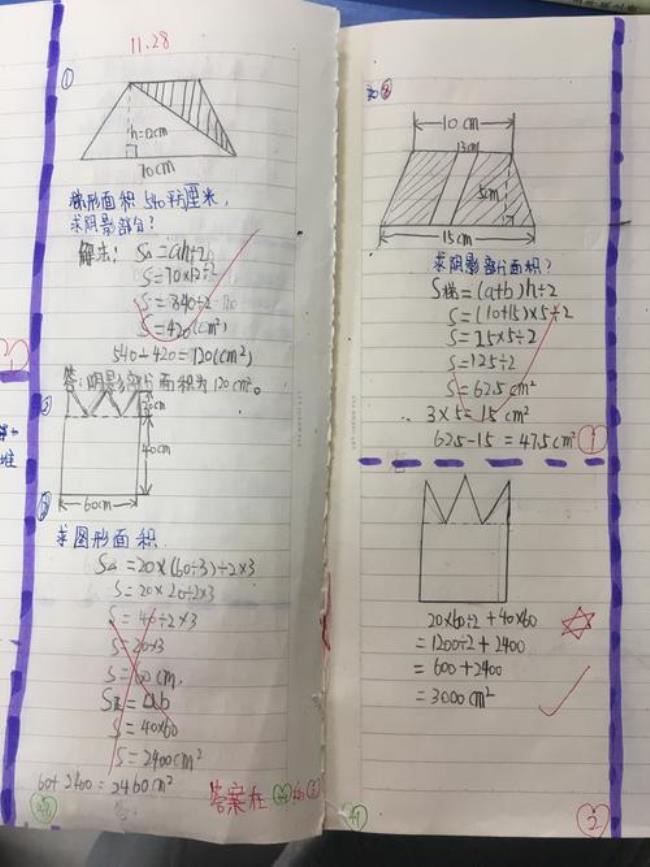 11.28
①
h=12cm
70cm
梯形面积540平方厘米,
求阴影部分?
解法: S△=ah÷2
S=70×12÷2
S=840÷2
S=420(cm²)
540-420=120(cm²)
答:阴影部分面积为120cm²。
②
20cm
40cm
60cm
求图形面积
S△=20×(60÷3)÷2×3
S=20×20÷2×3
S=40÷2×3
S=20×3
S=60cm.
S长=ab
S=40×60
S=2400cm²
60+2400=2460cm²
答案在
10cm
13cm
5cm
15cm
求阴影部分面积?
S梯=(a+b)h÷2
S=(10+15)×5÷2
S=25×5÷2
S=125÷2
S=62.5cm²
3×5=15cm²
62.5-15=47.5cm²
①
20×60÷2+40×60
=1200÷2+2400
=600+2400
=3000cm²
2